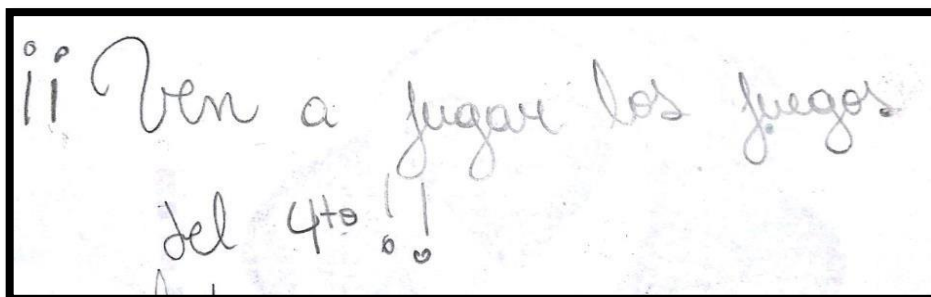 ¡¡ Ven a jugar los juegos
del 4to!!